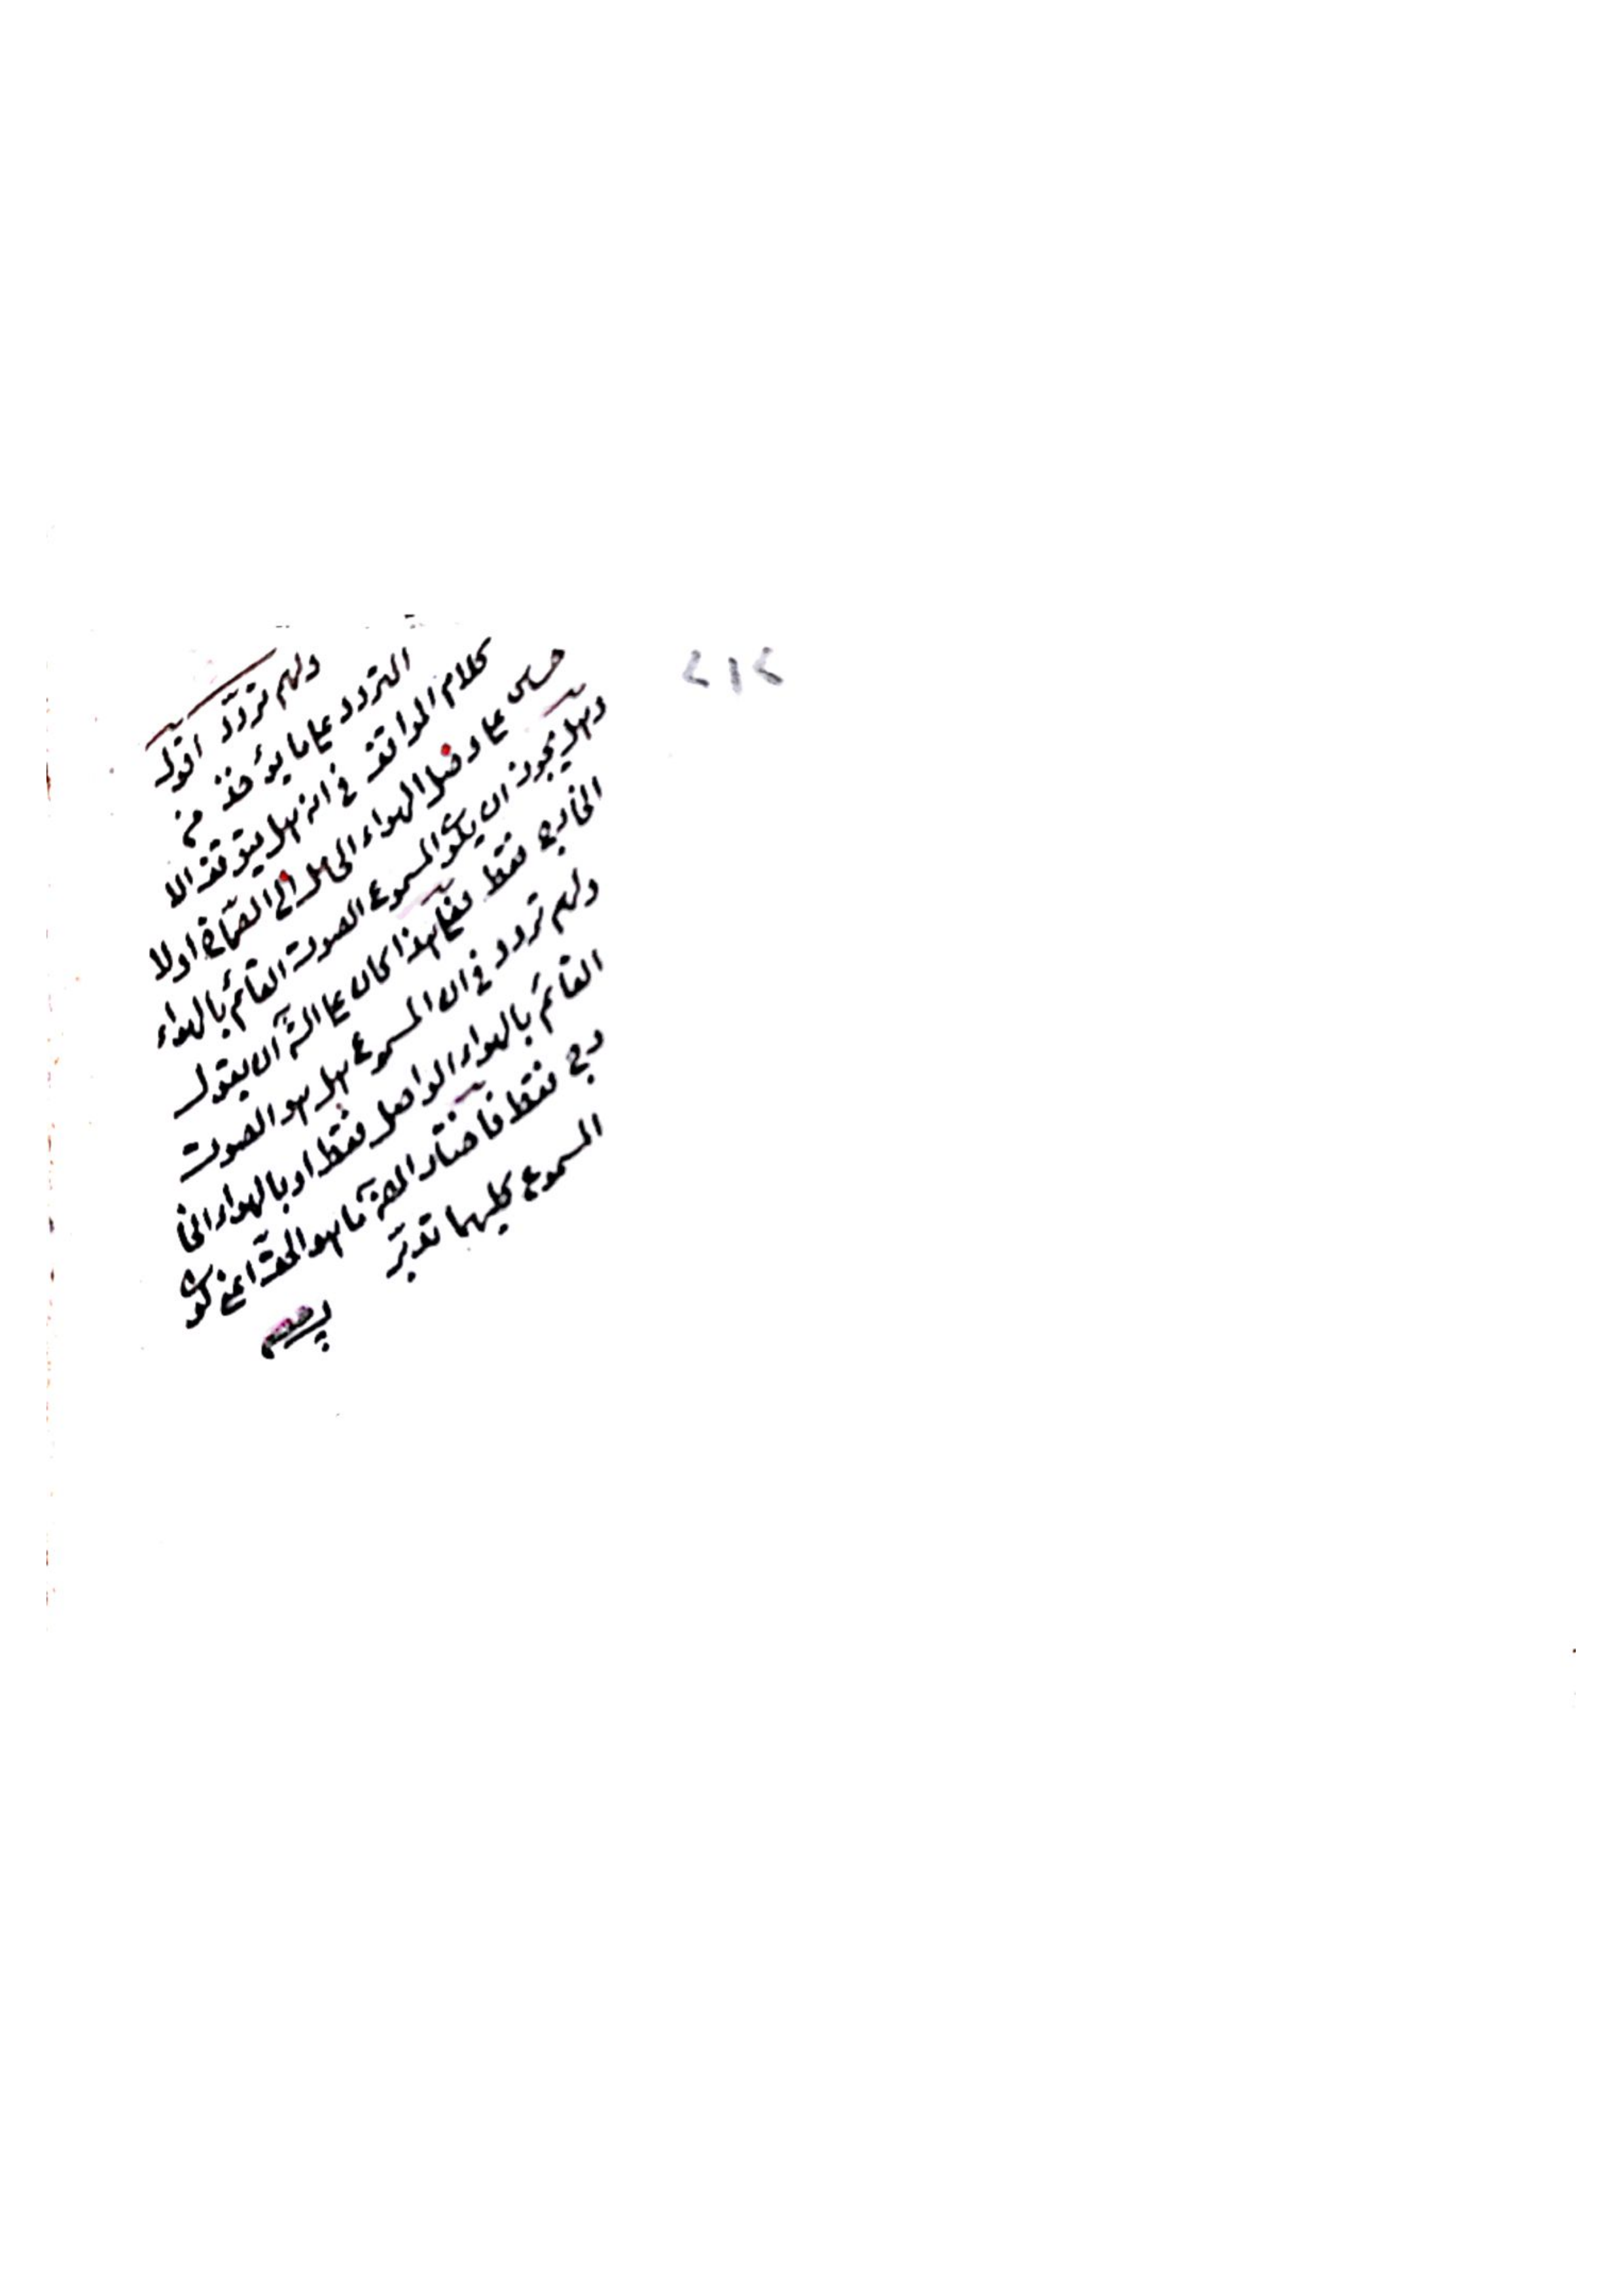 ٢١٢
ولهم تردد اقول
التردد على ما يؤخذ من
كلام المواقف في انه هل يتوقف الا
حساس على وصول الهواء الحامل الى الصماخ اولا
وهل يجوز ان يكون المسموع الصوت القائم بالهواء
الخارج فقط فعلى هذا كان على الش ان يقول
ولهم تردد في ان المسموع هل هو الصوت
القائم بالهواء الواصل فقط او بالهواء الخا
رج فقط فاختار المص ما هو الحق اعني كون
المسموع كليهما تدبر